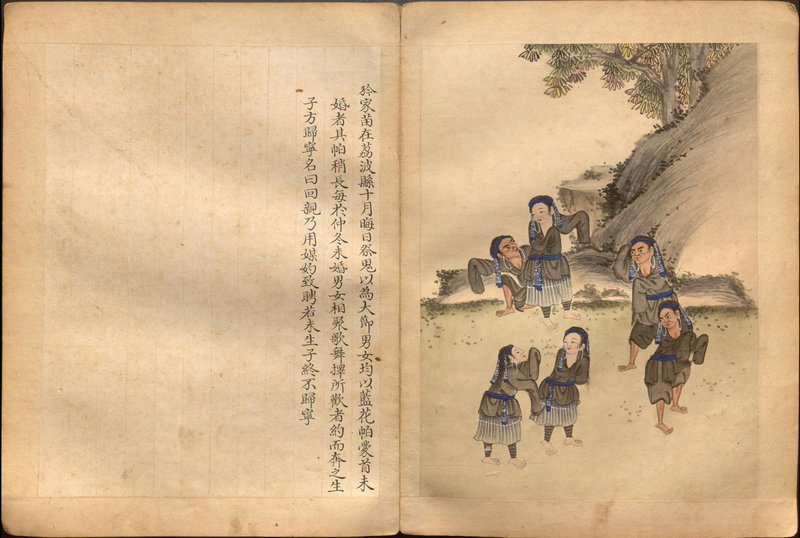 狑家苗在荔波縣十月晦日祭鬼以為大節男女均以藍花帕蒙首未
婚者其帕稍長每於仲冬未婚男女相聚歌舞擇所歡者約而奔之生
子方歸寧名曰回親乃用媒妁致聘若未生子終不歸寧